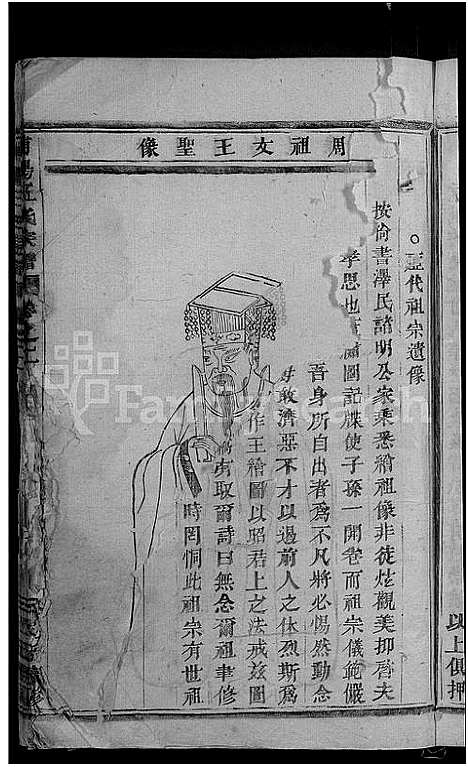 周祖文王聖像
○歷代祖宗遺像
按尙書澤民諸明公家乘悉繪祖像非徒炫觀美抑啓夫
孝思也 圖記牒使子孫一開卷而祖宗儀範儼
吾身所自出者爲不凡將必惕然動念
毋敢濟惡不才以遏前人之休烈斯爲
作王繪圖以昭君上之法戒兹圖
尙有取爾詩曰無念爾祖聿修
時罔恫此祖宗有世祖
以上俱押